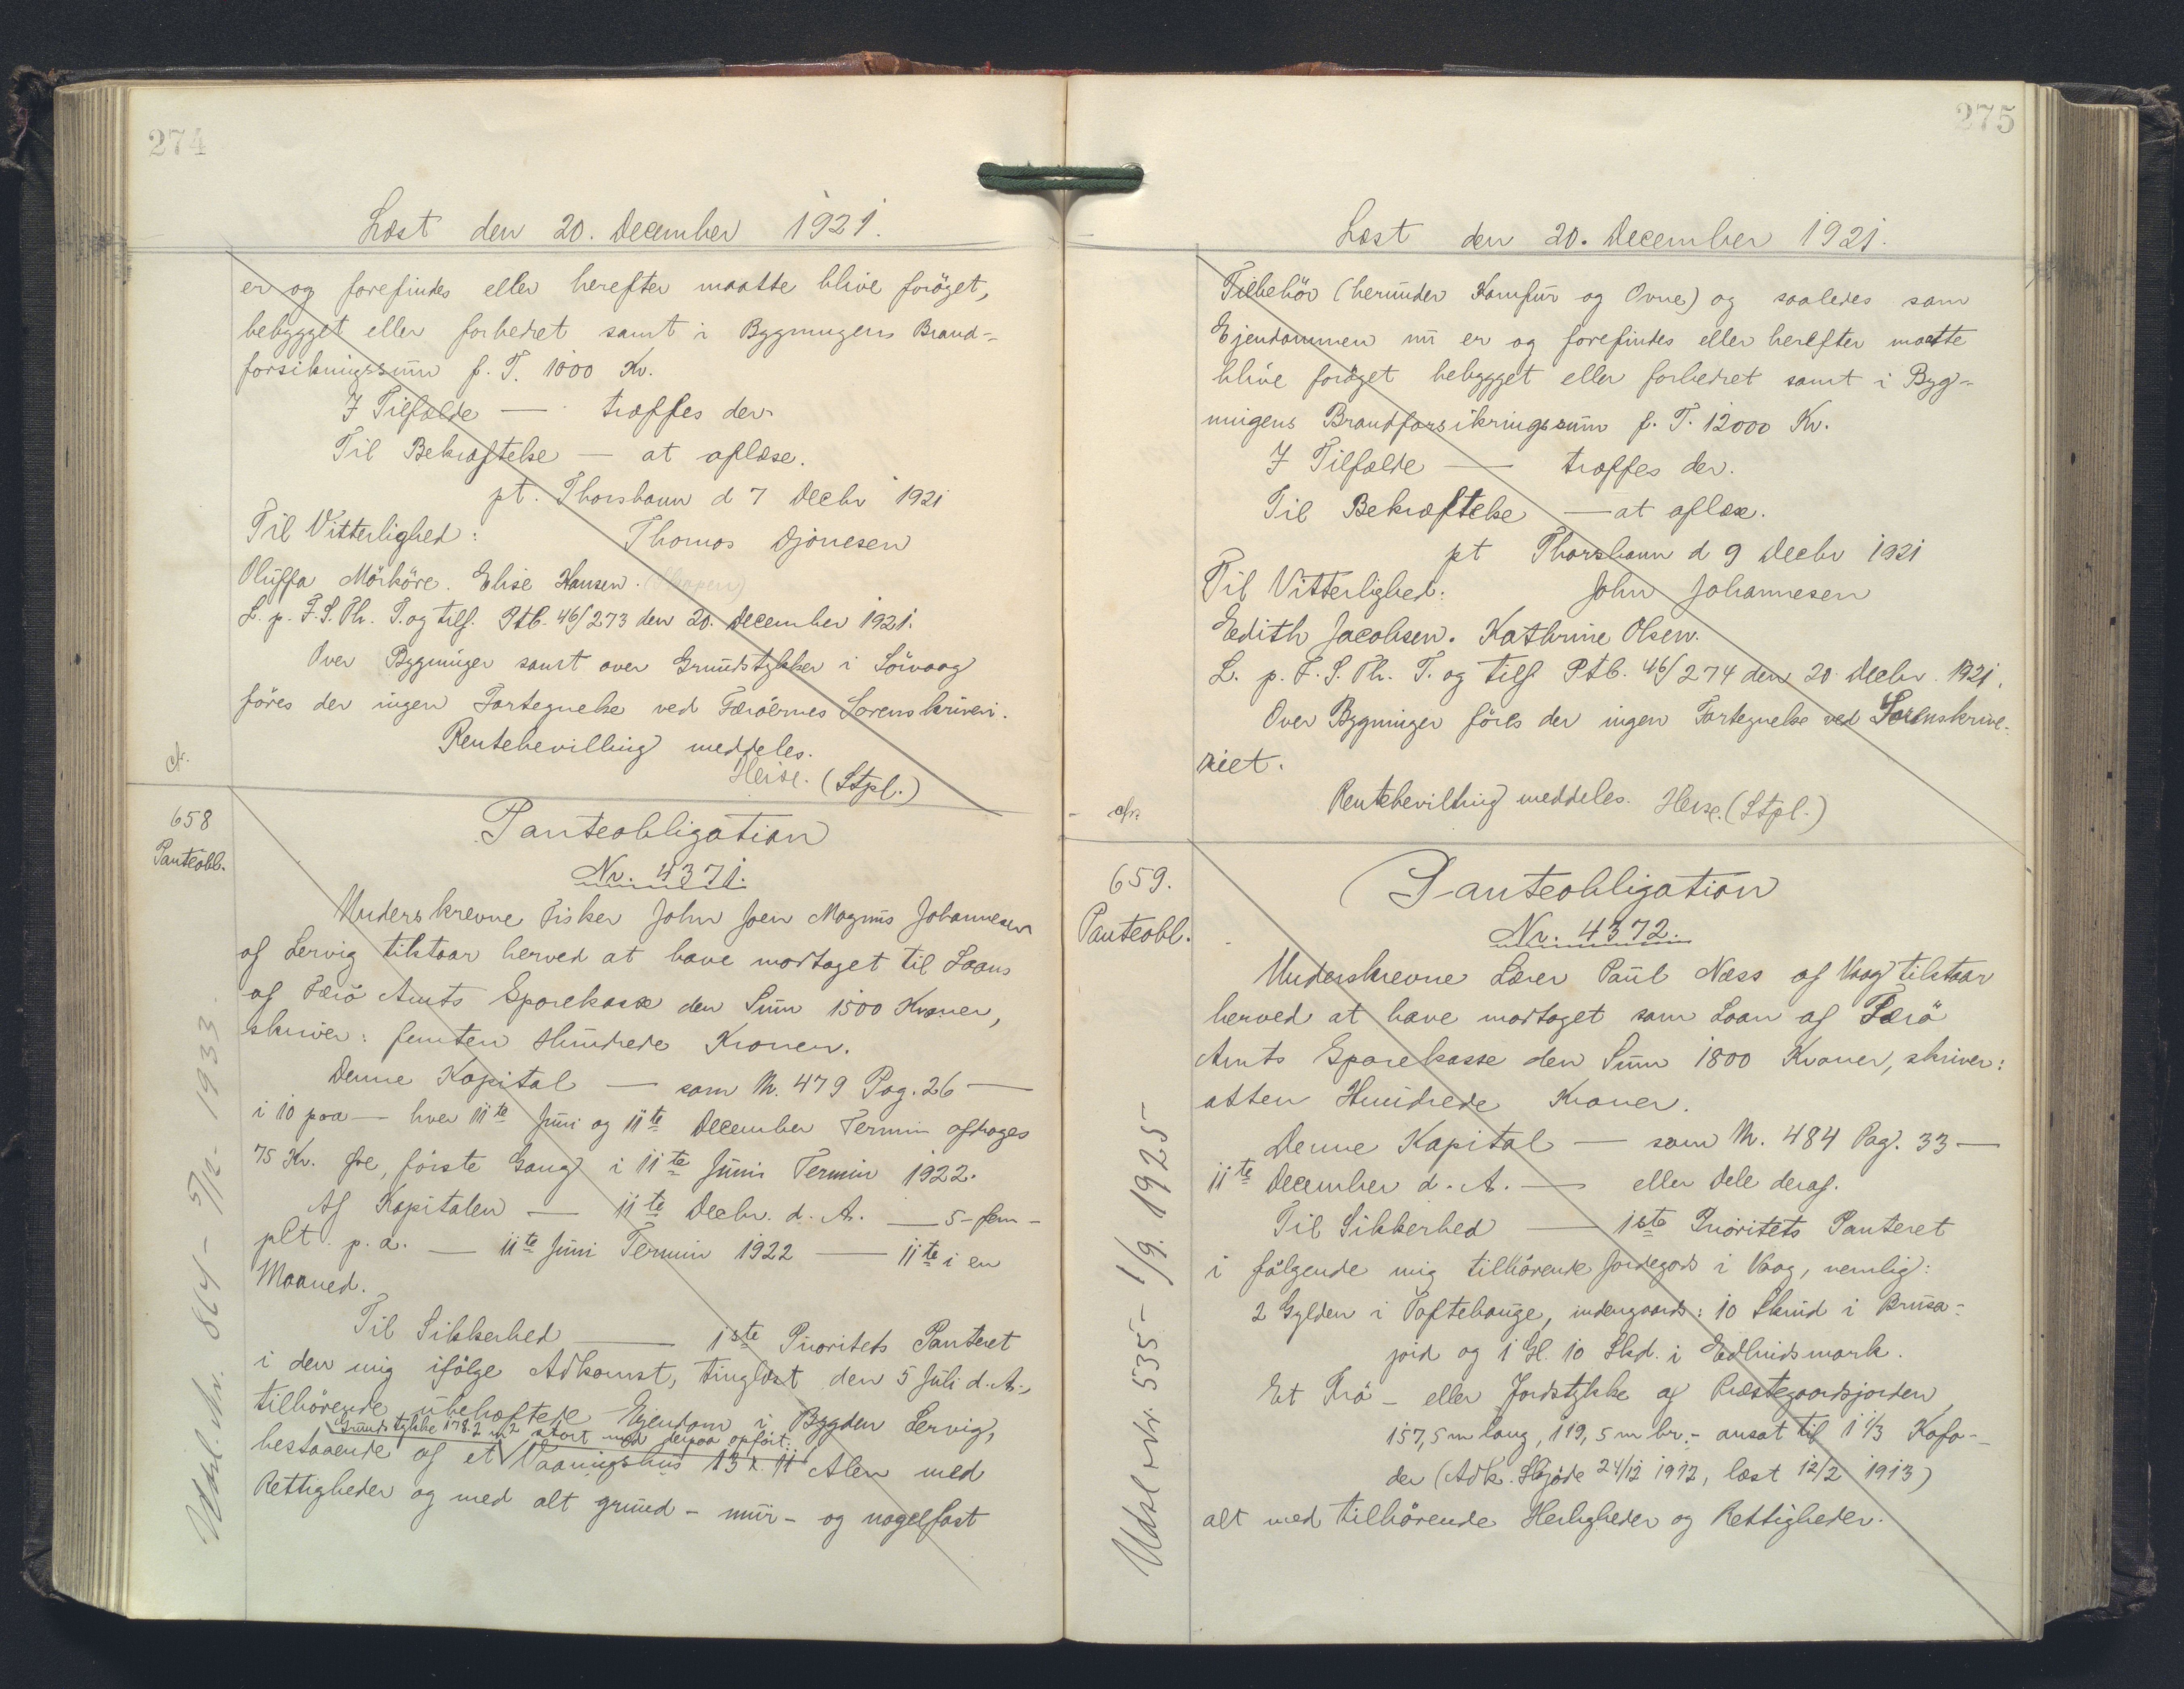 274
Læst den 20. December 1921.
er og forefindes eller herefter maatte blive forøget,
bebygget eller forbedret samt i Bygningens Brand-
forsikringssum f. T. 1000 Kr.
I Tilfælde — træffes der
Til Bekræftelse — at aflæse.
pt. Thorshavn d 7 Decbr 1921
Til Vitterlighed: Thomas Djonesen
Oluffa Mörköre. Elise Hansen.
L. p. F. S. Th. T. og tilf. Ptb. 46/273 den 20. December 1921.
Over Bygninger samt over Grundstykker i Sörvaag
föres der ingen Fortegnelse ved Færöernes Sorenskriveri.
Rentebevilling meddeles.
Heise. (Stpl.)
cfr.
658
Panteobl.
Panteobligation
Nr. 4371.
Underskrevne Fisker John Joen Magnus Johannesen
af Lervig tilstaar herved at have modtaget til Laans
af Færö Amts Sparekasse den Sum 1500 Kroner,
skriver: femten Hundrede Kroner.
Denne Kapital — som N. 479 Pag. 26 —
i 10 paa — hver 11te Juni og 11te December Termin afdrages
75 Kr. Øre, förste Gang i 11te Juni Termin 1922.
Af Kapitalen — 11te Decbr. d. A. — 5 - fem -
pCt. p. a. — 11te Juni Termin 1922 — 11te i en
Maaned.
Til Sikkerhed — 1ste Prioritets Panteret
i den mig ifölge Adkomst, tinglæst den 5 Juli d. A.,
tilhörende ubehæftede Ejendom i Bygden Lervig,
Grundstykke 178.2 m2 stort med derpaa opfört
bestaaende af et Vaaningshus 13 x 11 Alen med
Rettigheder og med alt grund- mur- og nagelfast
Udsl. Nr. 864 - 5/12 - 1933.
275
Læst den 20. December 1921.
Tilbehör (herunder Komfur og Ovne) og saaledes som
Ejendommen nu er og forefindes eller herefter maatte
blive foröget bebygget eller forbedret samt i Byg-
ningens Brandforsikringssum f. T. 12000 Kr.
I Tilfælde — træffes der.
Til Bekræftelse — at aflæse.
pt Thorshavn d 9 Decbr 1921
Til Vitterlighed: John Johannesen
Edith Jacobsen. Kathrine Olsen.
L. p. F. S. Th. T. og tilf. Ptb. 46/274 den 20 Decbr. 1921.
Over Bygninger föres der ingen Fortegnelse ved Sorenskrive-
riet.
Rentebevilling meddeles. Heise. (Stpl.)
cfr.
659.
Panteobl.
Panteobligation
Nr. 4372.
Underskrevne Lærer Paul Næss af Vaag tilstaar
herved at have modtaget som Laan af Færö
Amts Sparekasse den Sum 1800 Kroner, skriver:
atten Hundrede Kroner.
Denne Kapital — som N. 484 Pag. 33 —
11te December d. A. — eller Dele deraf.
Til Sikkerhed — 1ste Prioritets Panteret
i fölgende mig tilhörende Jordegods i Vaag, nemlig:
2 Gylden i Toftehauge, indengaards: 10 Skind i Brusa-
joid og 1 Gl. 10 Skd. i Eidlindsmark.
Et Trö - eller Jordstykke af Præstegaardsjorden
157,5 m lang, 119,5 m br. - ansat til 1 1/3 Kofo-
der (Adk. Skjöde 24/12 1912, læst 12/2 1913)
alt med tilhörende Herligheder og Rettigheder.
Udsl. Nr. 535 - 1/9. 1925